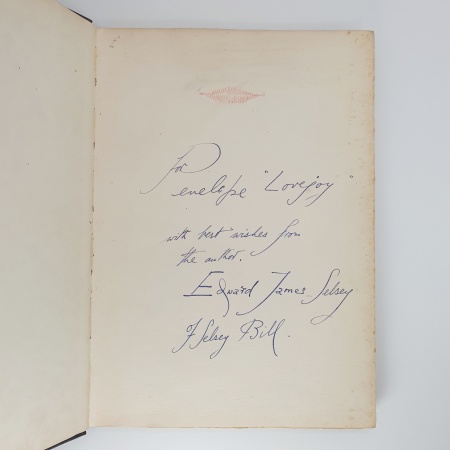 For
Penelope "Lovejoy"
with best wishes from
the author.
Edward James Selsey
Selsey Bill.